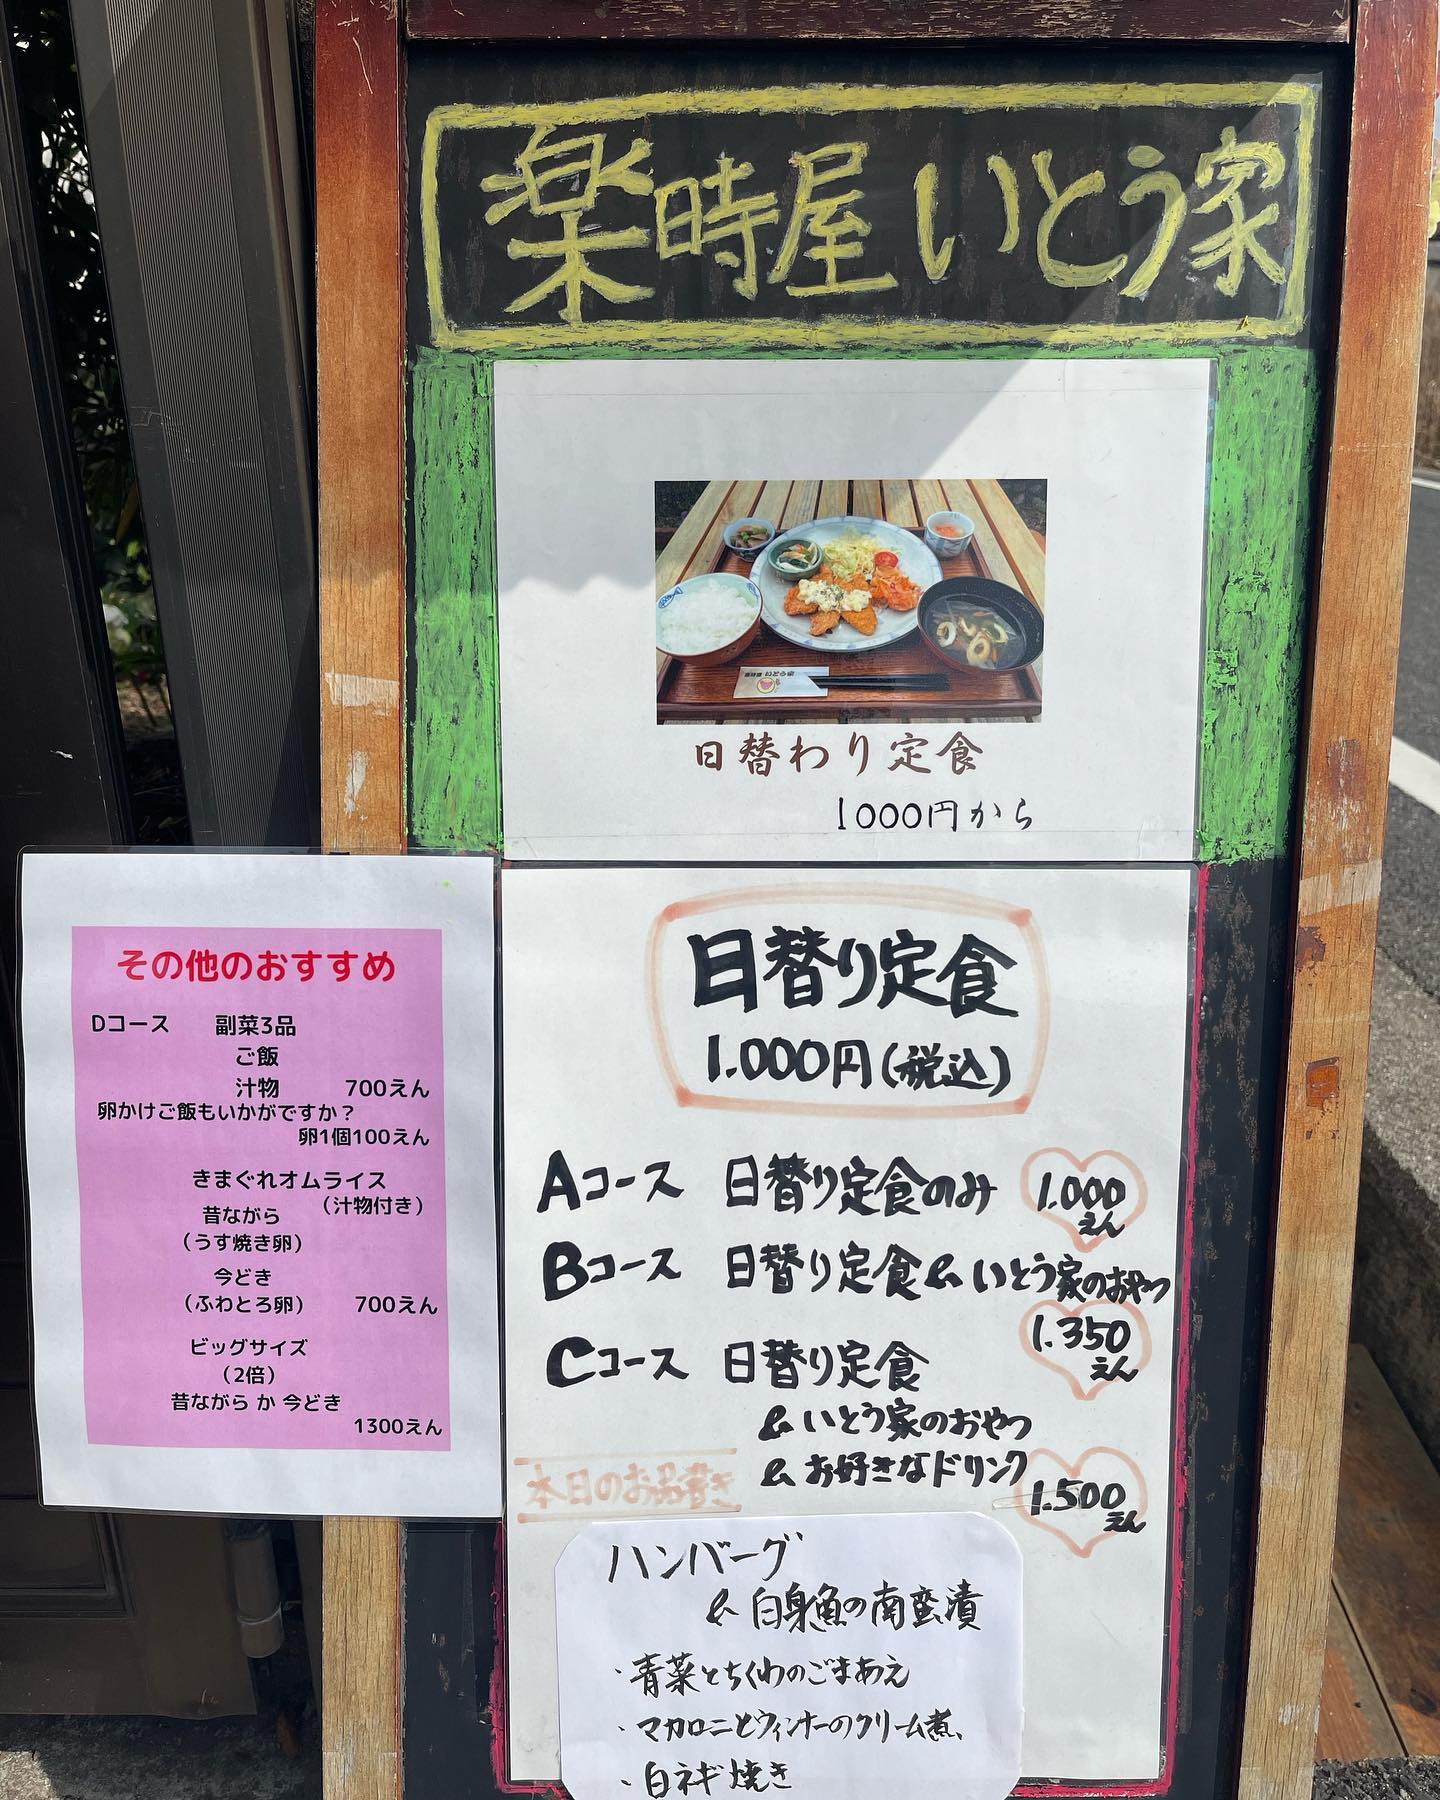 楽時屋 いとう家
楽時屋 いとう家
日替わり定食
1000円から
日替り定食
1.000円(税込)
Aコース 日替り定食のみ 1.000えん
Bコース 日替り定食&いとう家のおやつ
1.350えん
Cコース 日替り定食
&いとう家のおやつ
&お好きなドリンク
1.500えん
本日のお品書き
ハンバーグ
&白身魚の南蛮漬
・青菜とちくわのごまあえ
・マカロニとウィンナーのクリーム煮、
・白ネギ焼き
その他のおすすめ
Dコース 副菜3品
ご飯
汁物 700えん
卵かけご飯もいかがですか？
卵1個100えん
きまぐれオムライス
(汁物付き)
昔ながら
(うす焼き卵)
今どき
(ふわとろ卵) 700えん
ビッグサイズ
(2倍)
昔ながら か 今どき
1300えん